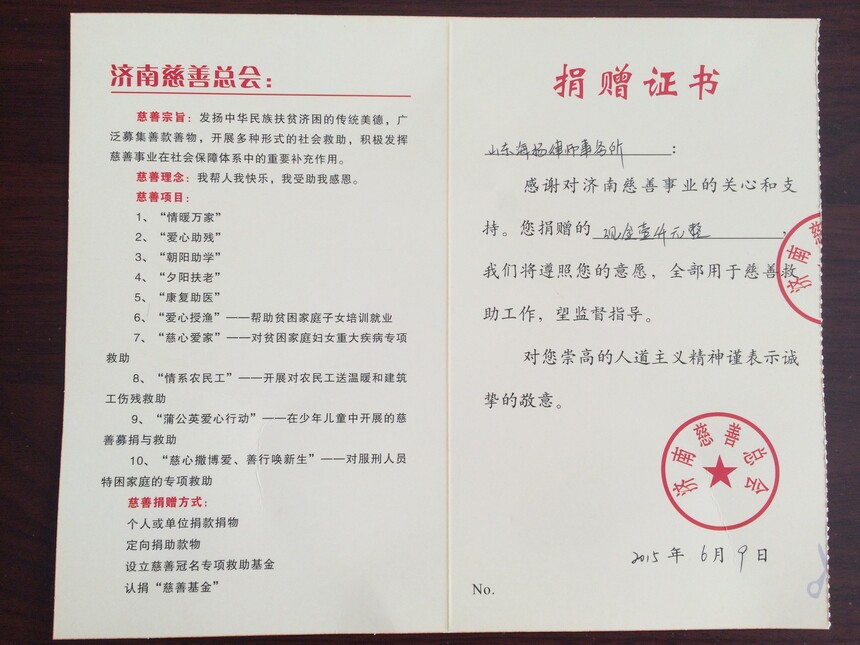 济南慈善总会：
慈善宗旨：发扬中华民族扶贫济困的传统美德，广
泛募集善款善物，开展多种形式的社会救助，积极发挥
慈善事业在社会保障体系中的重要补充作用。
慈善理念：我帮人我快乐，我受助我感恩。
慈善项目：
1、“情暖万家”
2、“爱心助残”
3、“朝阳助学”
4、“夕阳扶老”
5、“康复助医”
6、“爱心授渔”——帮助贫困家庭子女培训就业
7、“慈心爱家”——对贫困家庭妇女重大疾病专项
救助
8、“情系农民工”——开展对农民工送温暖和建筑
工伤残救助
9、“蒲公英爱心行动”——在少年儿童中开展的慈
善募捐与救助
10、“慈心撒博爱、善行唤新生”——对服刑人员
特困家庭的专项救助
慈善捐赠方式：
个人或单位捐款捐物
定向捐助款物
设立慈善冠名专项救助基金
认捐“慈善基金”
捐赠证书
山东海扬律师事务所：
感谢对济南慈善事业的关心和支
持。您捐赠的 现金壹仟元整，
我们将遵照您的意愿，全部用于慈善救
助工作，望监督指导。
对您崇高的人道主义精神谨表示诚
挚的敬意。
济南慈
济南慈善总会
2015年6月9日
No.